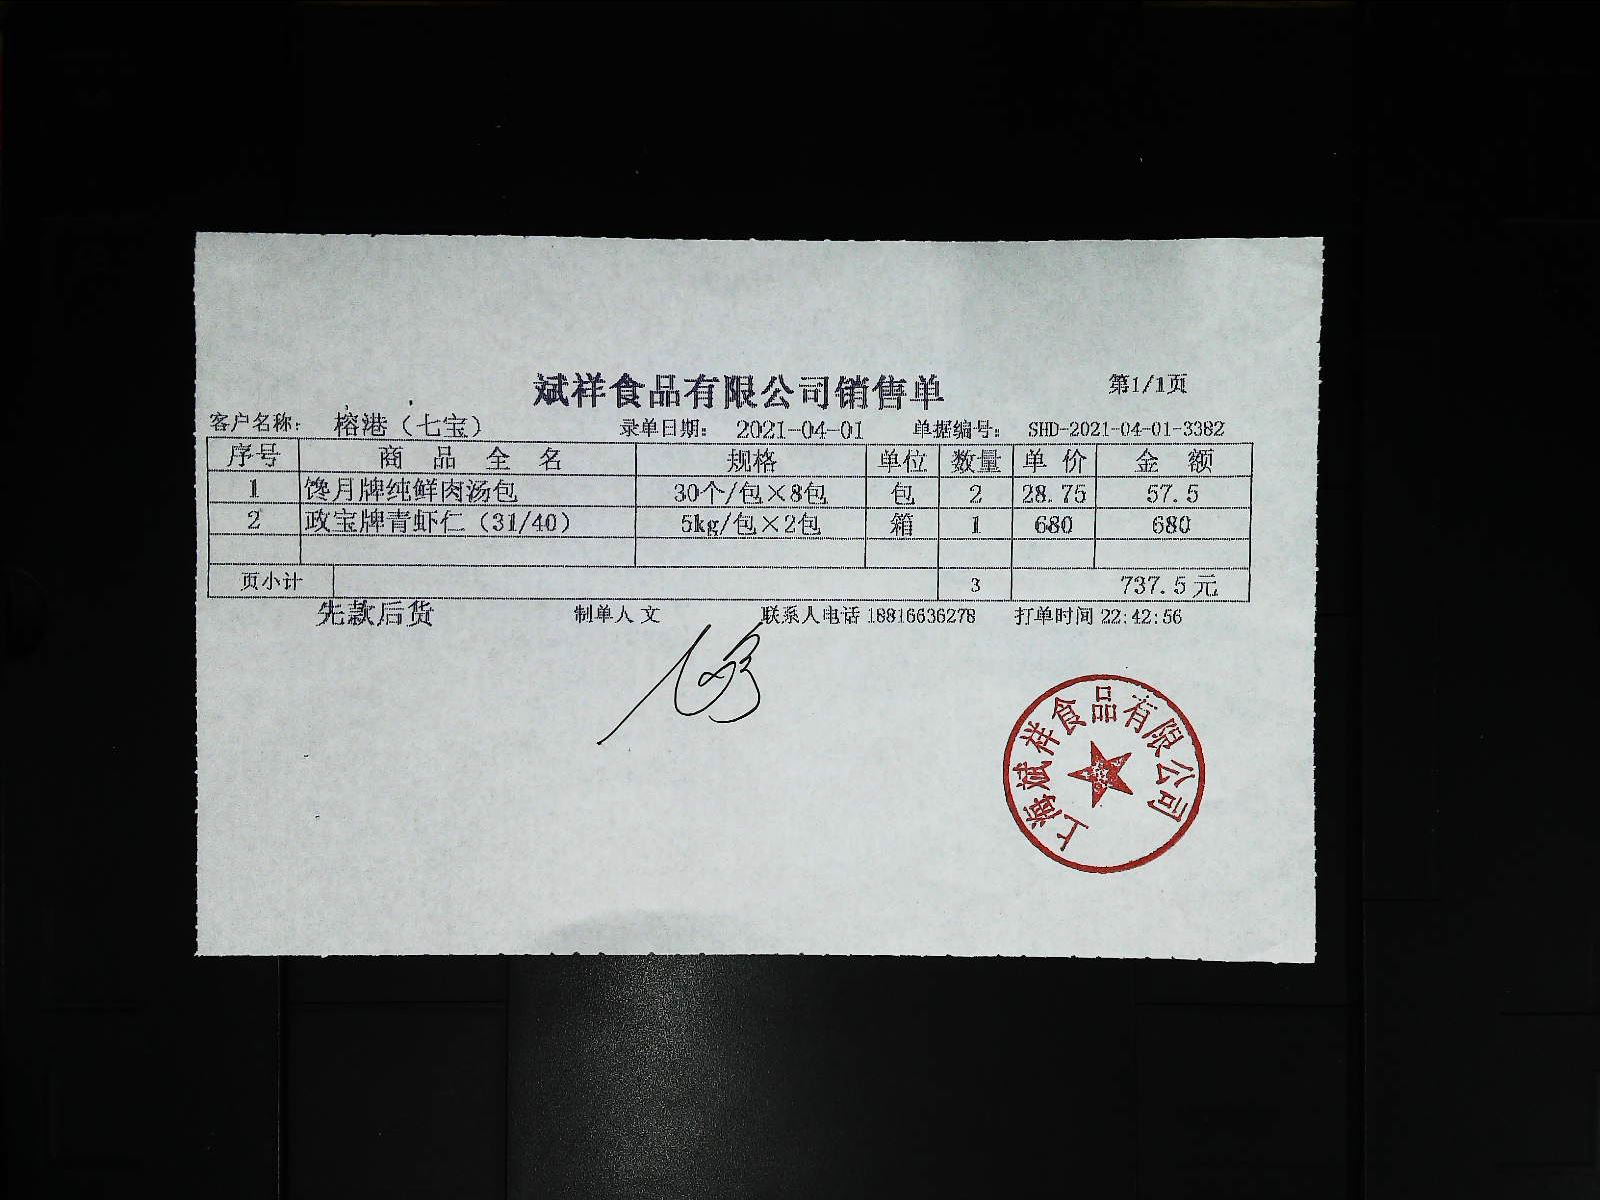 斌祥食品有限公司销售单
第1/1页
客户名称： 榕港（七宝） 录单日期： 2021-04-01 单据编号： SHD-2021-04-01-3382
序号 商品全名 规格 单位 数量 单价 金额
1 馋月牌纯鲜肉汤包 30个/包×8包 包 2 28.75 57.5
2 政宝牌青虾仁（31/40） 5kg/包×2包 箱 1 680 680
页小计 3 737.5元
先款后货 制单人 文 联系人电话 18816636278 打单时间 22:42:56
上海斌祥食品有限公司